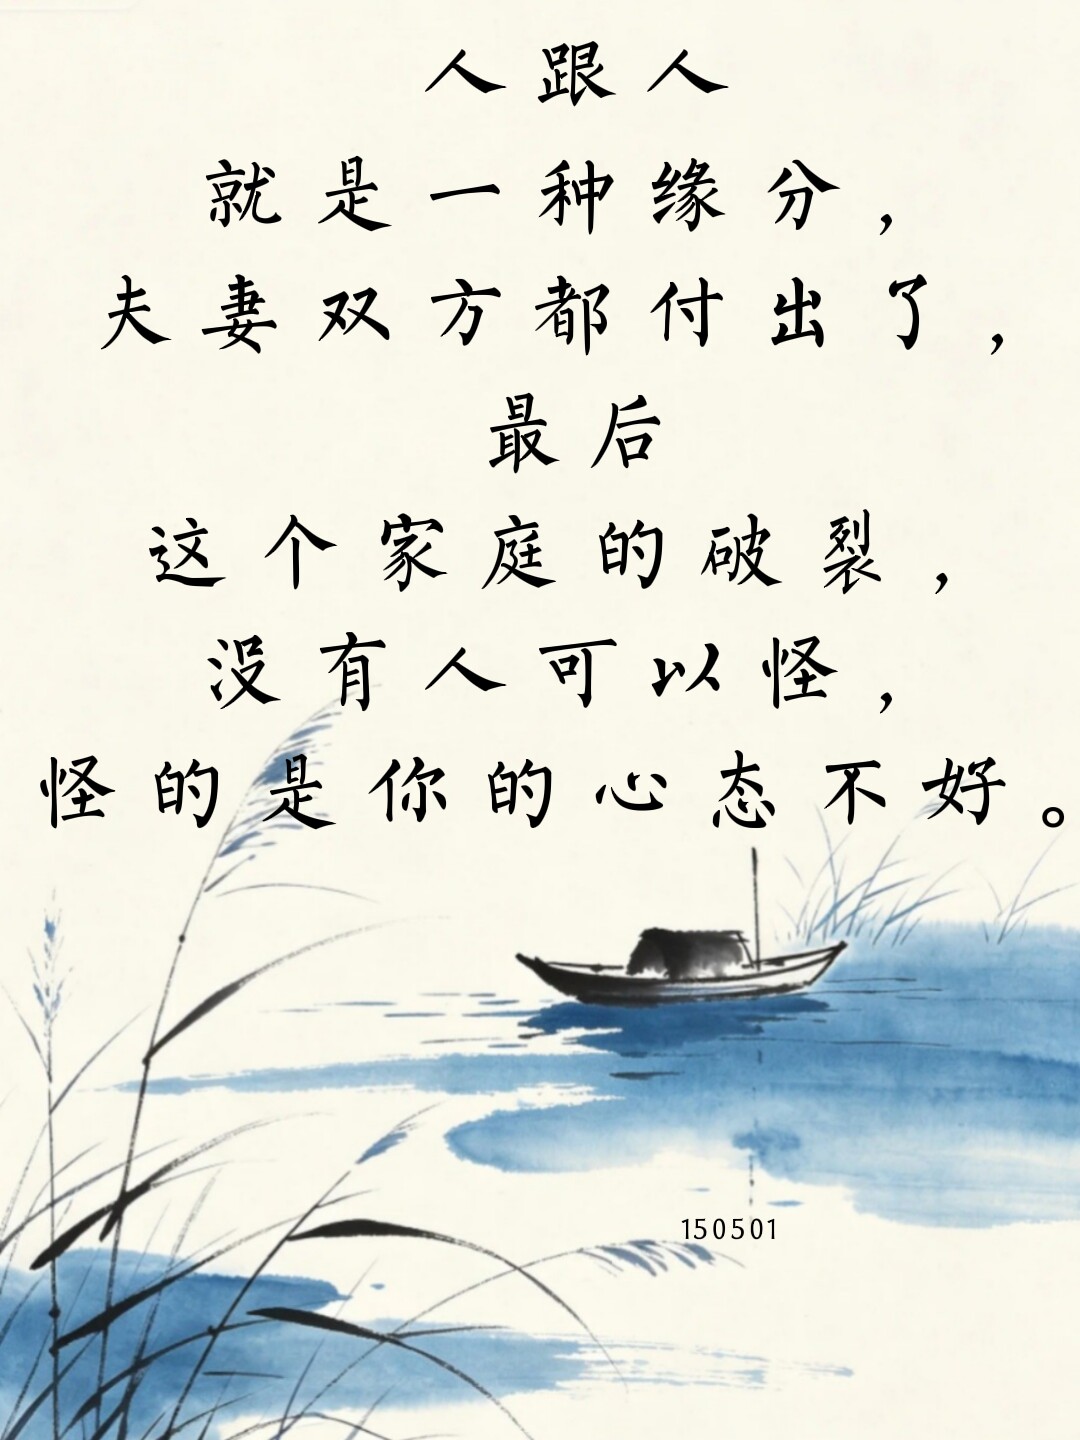 人跟人
就是一种缘分，
夫妻双方都付出了，
最后
这个家庭的破裂，
没有人可以怪，
怪的是你的心态不好。
150501